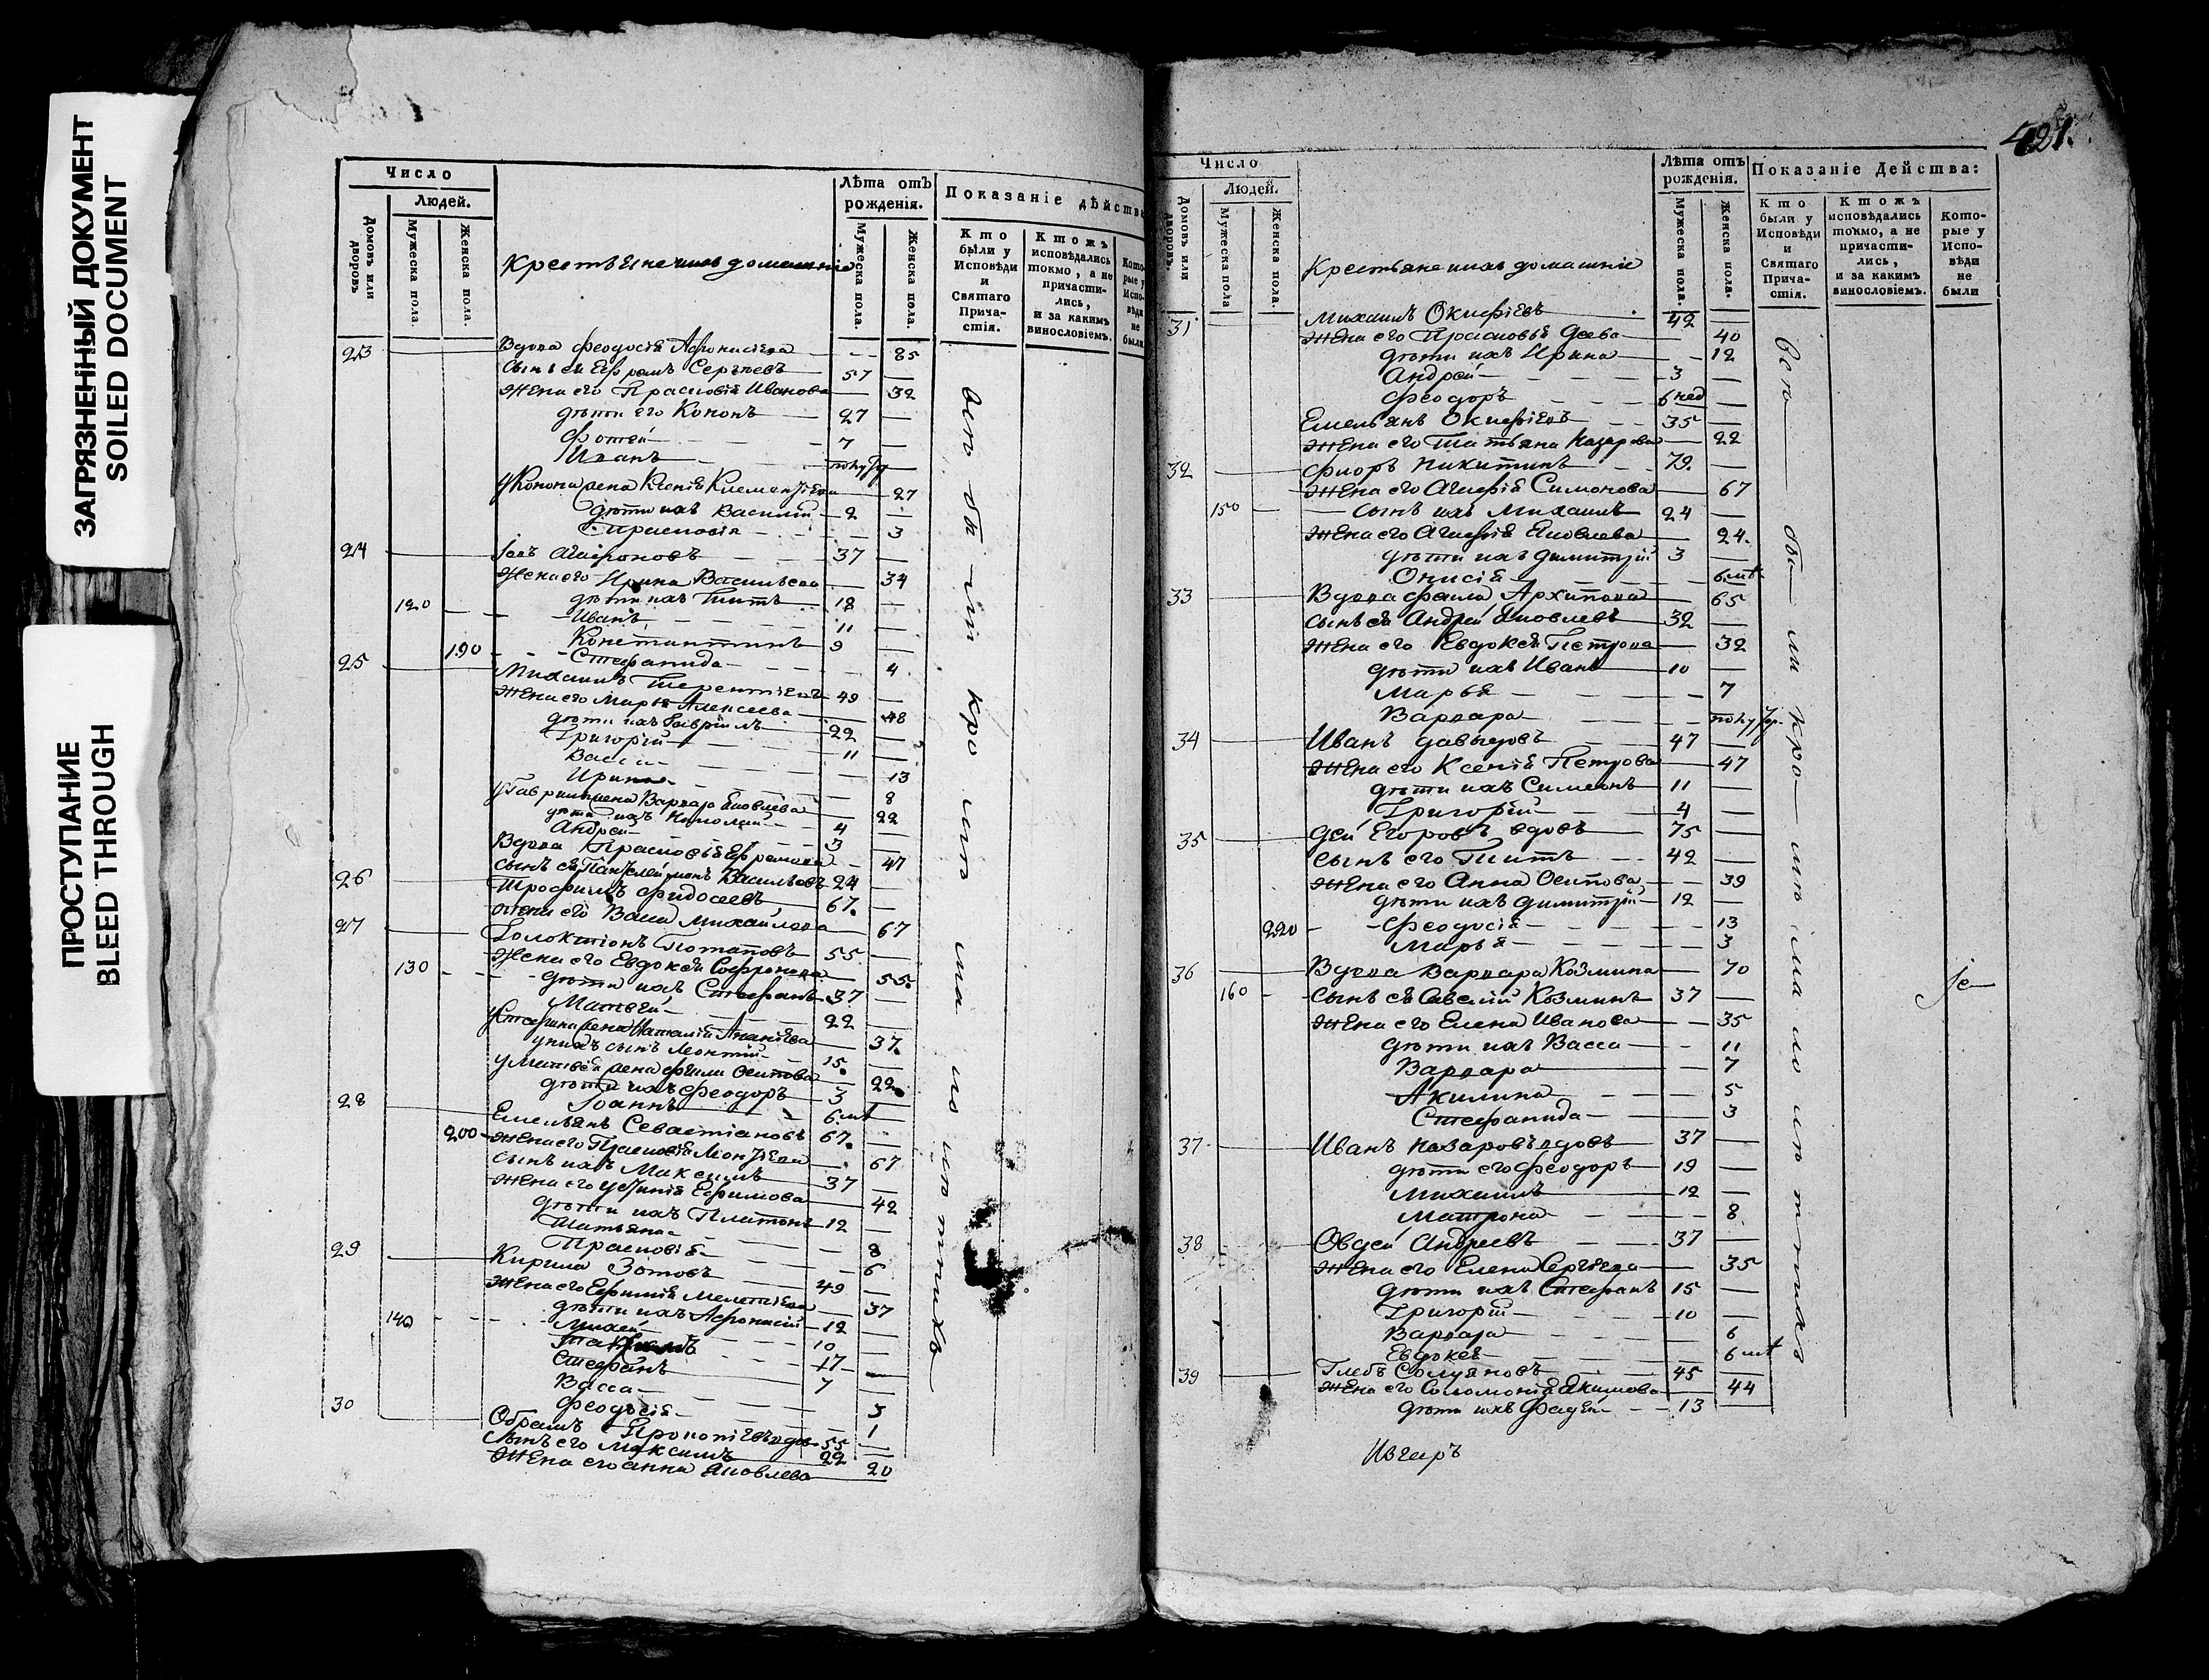 ЗАГРЯЗНЕННЫЙ ДОКУМЕНТ
SOILED DOCUMENT
ПРОСТУПАНИЕ
BLEED THROUGH
Число
Людей.
Домовъ или дворовъ
Мужеска пола.
Женска пола.
Крестьяне и ихъ домашніе
Лѣта отъ рожденія.
Мужеска пола.
Женска пола.
Показаніе дѣйства
Кто были у Исповѣди и Святаго Причастія.
Ктожъ исповѣдались токмо, а не причастились, и за какимъ винословіемъ.
Которые у Исповѣди не были
23 Вдова Феодосія 85
Сынъ ея Ефремъ Сергѣевъ 57
Жена его Прасковія Иванова 32
дѣти его Кононъ 27
Фотей 7
Иванъ
У Конона жена Ксенія 27
дѣти ихъ Василій 2
Прасковія 3
24 Агафоновъ 37
Жена его Ирина 34
120 дѣти ихъ Титъ 18
Иванъ 11
Константинъ 9
190 Стефанида 4
25 Михаилъ Терентіевъ 49
Жена его Марья Алексеева 48
дѣти ихъ Гавріилъ 22
Григорій 11
13
Ирина 8
жена Варвара Яковлева 22
дѣти ихъ Николай 4
Андрей 3
Вдова Прасковья Ефремова 47
сынъ ея Васильевъ 24
26 Трофимъ Фидосеевъ 67.
жена его Васса Михайлова 67
27 Потаповъ 55
130 Жена его Евдокея 55.
дѣти ихъ Стефанъ 37
Матвей 22
жена Наталія 37.
у нихъ сынъ Леонтій 15.
у Матвея жена Осипова 22
дѣти ихъ Феодоръ 3
Іоаннъ 6.
28 Емельянъ Севастіановъ 67.
200 Жена его Прасковія 67
Сынъ ихъ Максимъ 37
Жена его Устинія Ефимова 42
дѣти ихъ Платонъ 12
Татьяна 8
Прасковія 6
29 Кирила Зотовъ 49
Жена его Ефимія 37
140 дѣти ихъ Афонасій 12
Михей 10
17
Стефанъ 7
Васса 3
Феодосія 1
30 Обрамъ вдовъ 55
Сынъ его Максимъ 22
Жена его Анна Яковлева 20
всѣ были кромѣ малолѣтнихъ
421.
Число
Людей.
Домовъ или дворовъ.
Мужеска пола
Женска пола.
Крестьяне и ихъ домашніе
Лѣта отъ рожденія.
Мужеска пола.
Женска пола.
Показаніе Действа:
Кто были у Исповѣди и Святаго Причастія.
Ктожъ исповѣдались токмо, а не причастились, и за какимъ винословіемъ.
Которые у Исповѣди не были
31 Михаилъ Окифіевъ 42
Жена его Прасковья 40
дѣти ихъ Ирина 12
Андрей 3
Феодоръ 6 нед
Емельянъ Окифіевъ 35
Жена его Татьяна Назарова 22
32 Фиоръ Никитинъ 72.
Жена его Агафія Симонова 67
150 сынъ ихъ Михаилъ 24
Жена его Агафія Яковлева 24.
дѣти ихъ Димитрій 3
Онисія
33 Вдова Архипова 65
сынъ ея Андрей Яковлевъ 32
Жена его Евдокея Петрова 32
дѣти ихъ Иванъ 10
Марья 7
Варвара
34 Иванъ Давыдовъ 47
Жена его Ксенія Петрова 47
дѣти ихъ Симеонъ 11
Григорій 4
35 Егоровъ вдовъ 75
сынъ его Титъ 42
Жена его Анна Осипова 39
дѣти ихъ Димитрій 12
220 Феодосія 13
Марья 3
36 Вдова Варвара Козмина 70
160 Сынъ ея Савелій Козминъ 37
Жена его Елена Иванова 35
дѣти ихъ Васса 11
Варвара 7
Акилина 5
Стефанида 3
37 Иванъ Назаровъ вдовъ 37
дѣти его Феодоръ 19
Михаилъ 12
Матрона 8
38 Овдей Андреевъ 37
Жена его Елена Сергѣева 35
дѣти ихъ Стефанъ 15
Григорій 10
Варвара 6
Евдокея 6
39 Глебъ 45
Жена его Соломонія Екимова 44
дѣти ихъ Фадей 13
всѣ были кромѣ малолѣтнихъ